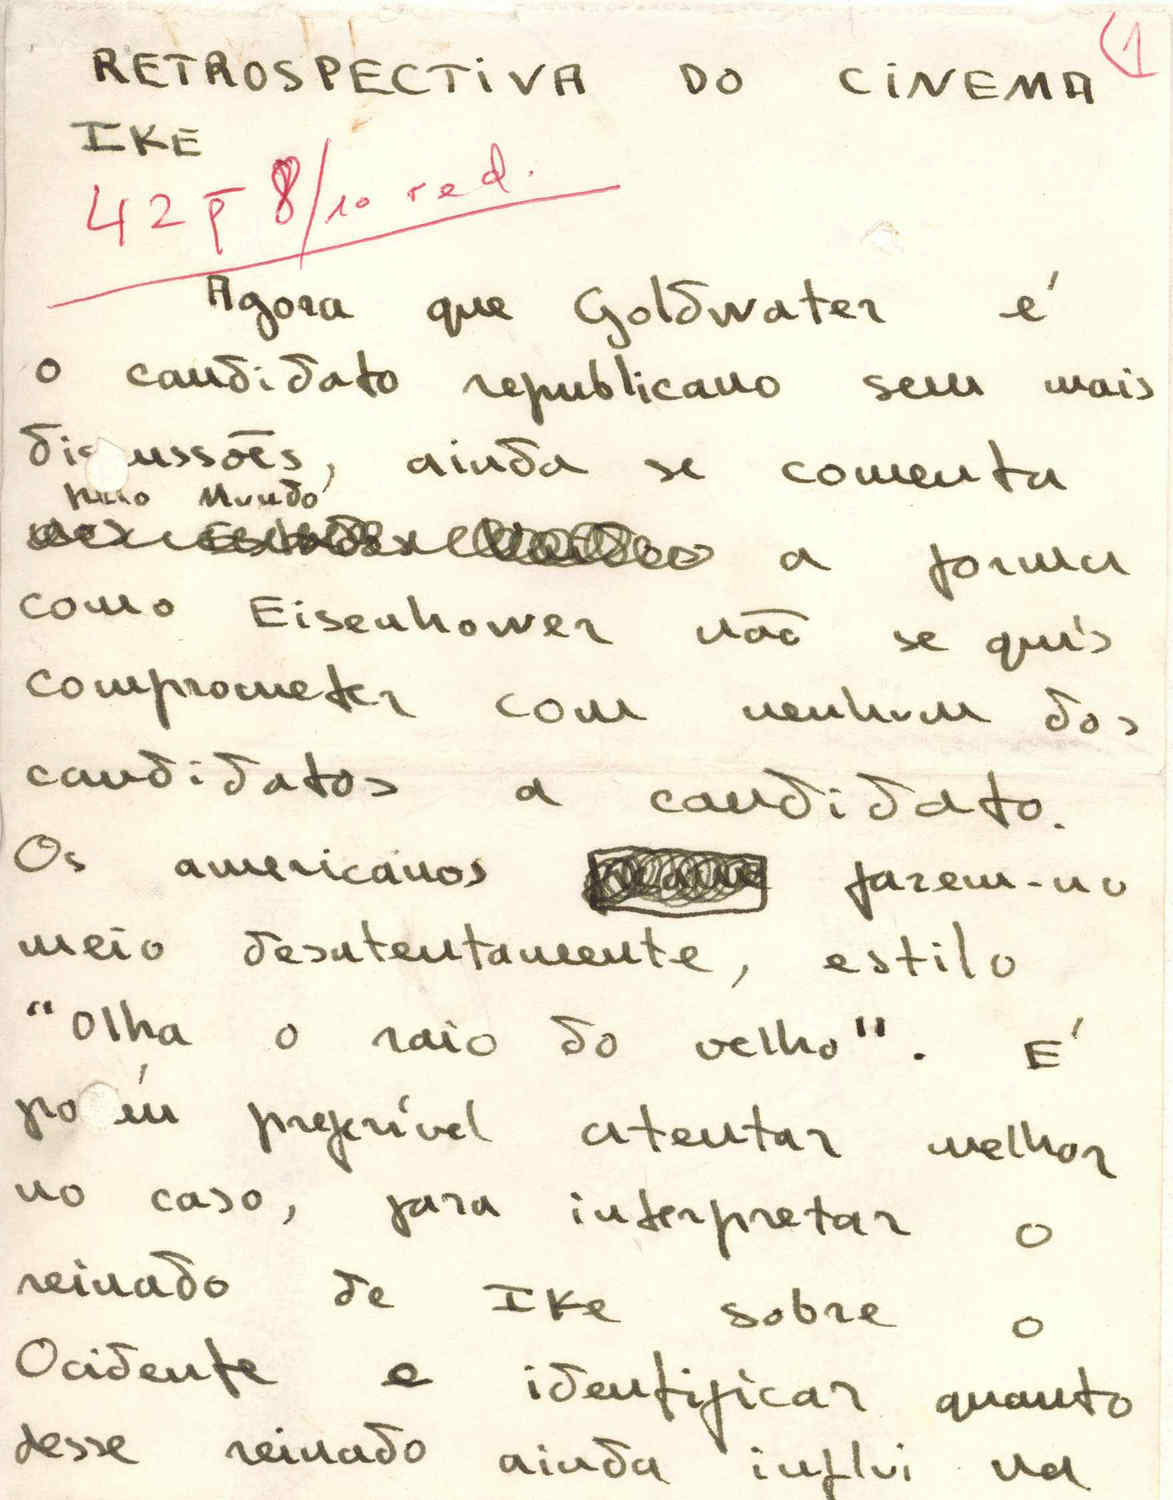 1
RETROSPECTIVA DO CINEMA
IKE
42 p 8/10 red.
Agora que Goldwater é
o candidato republicano sem mais
discussões, ainda se comenta
pelo Mundo
a forma
como Eisenhower não se quís
comprometer com nenhum dos
candidatos a candidato.
Os americanos fazem-no
meio desatentamente, estilo
"Olha o raio do velho". É
porém preferível atentar melhor
no caso, para interpretar o
reinado de Ike sobre o
Ocidente e identificar quanto
desse reinado ainda influi na